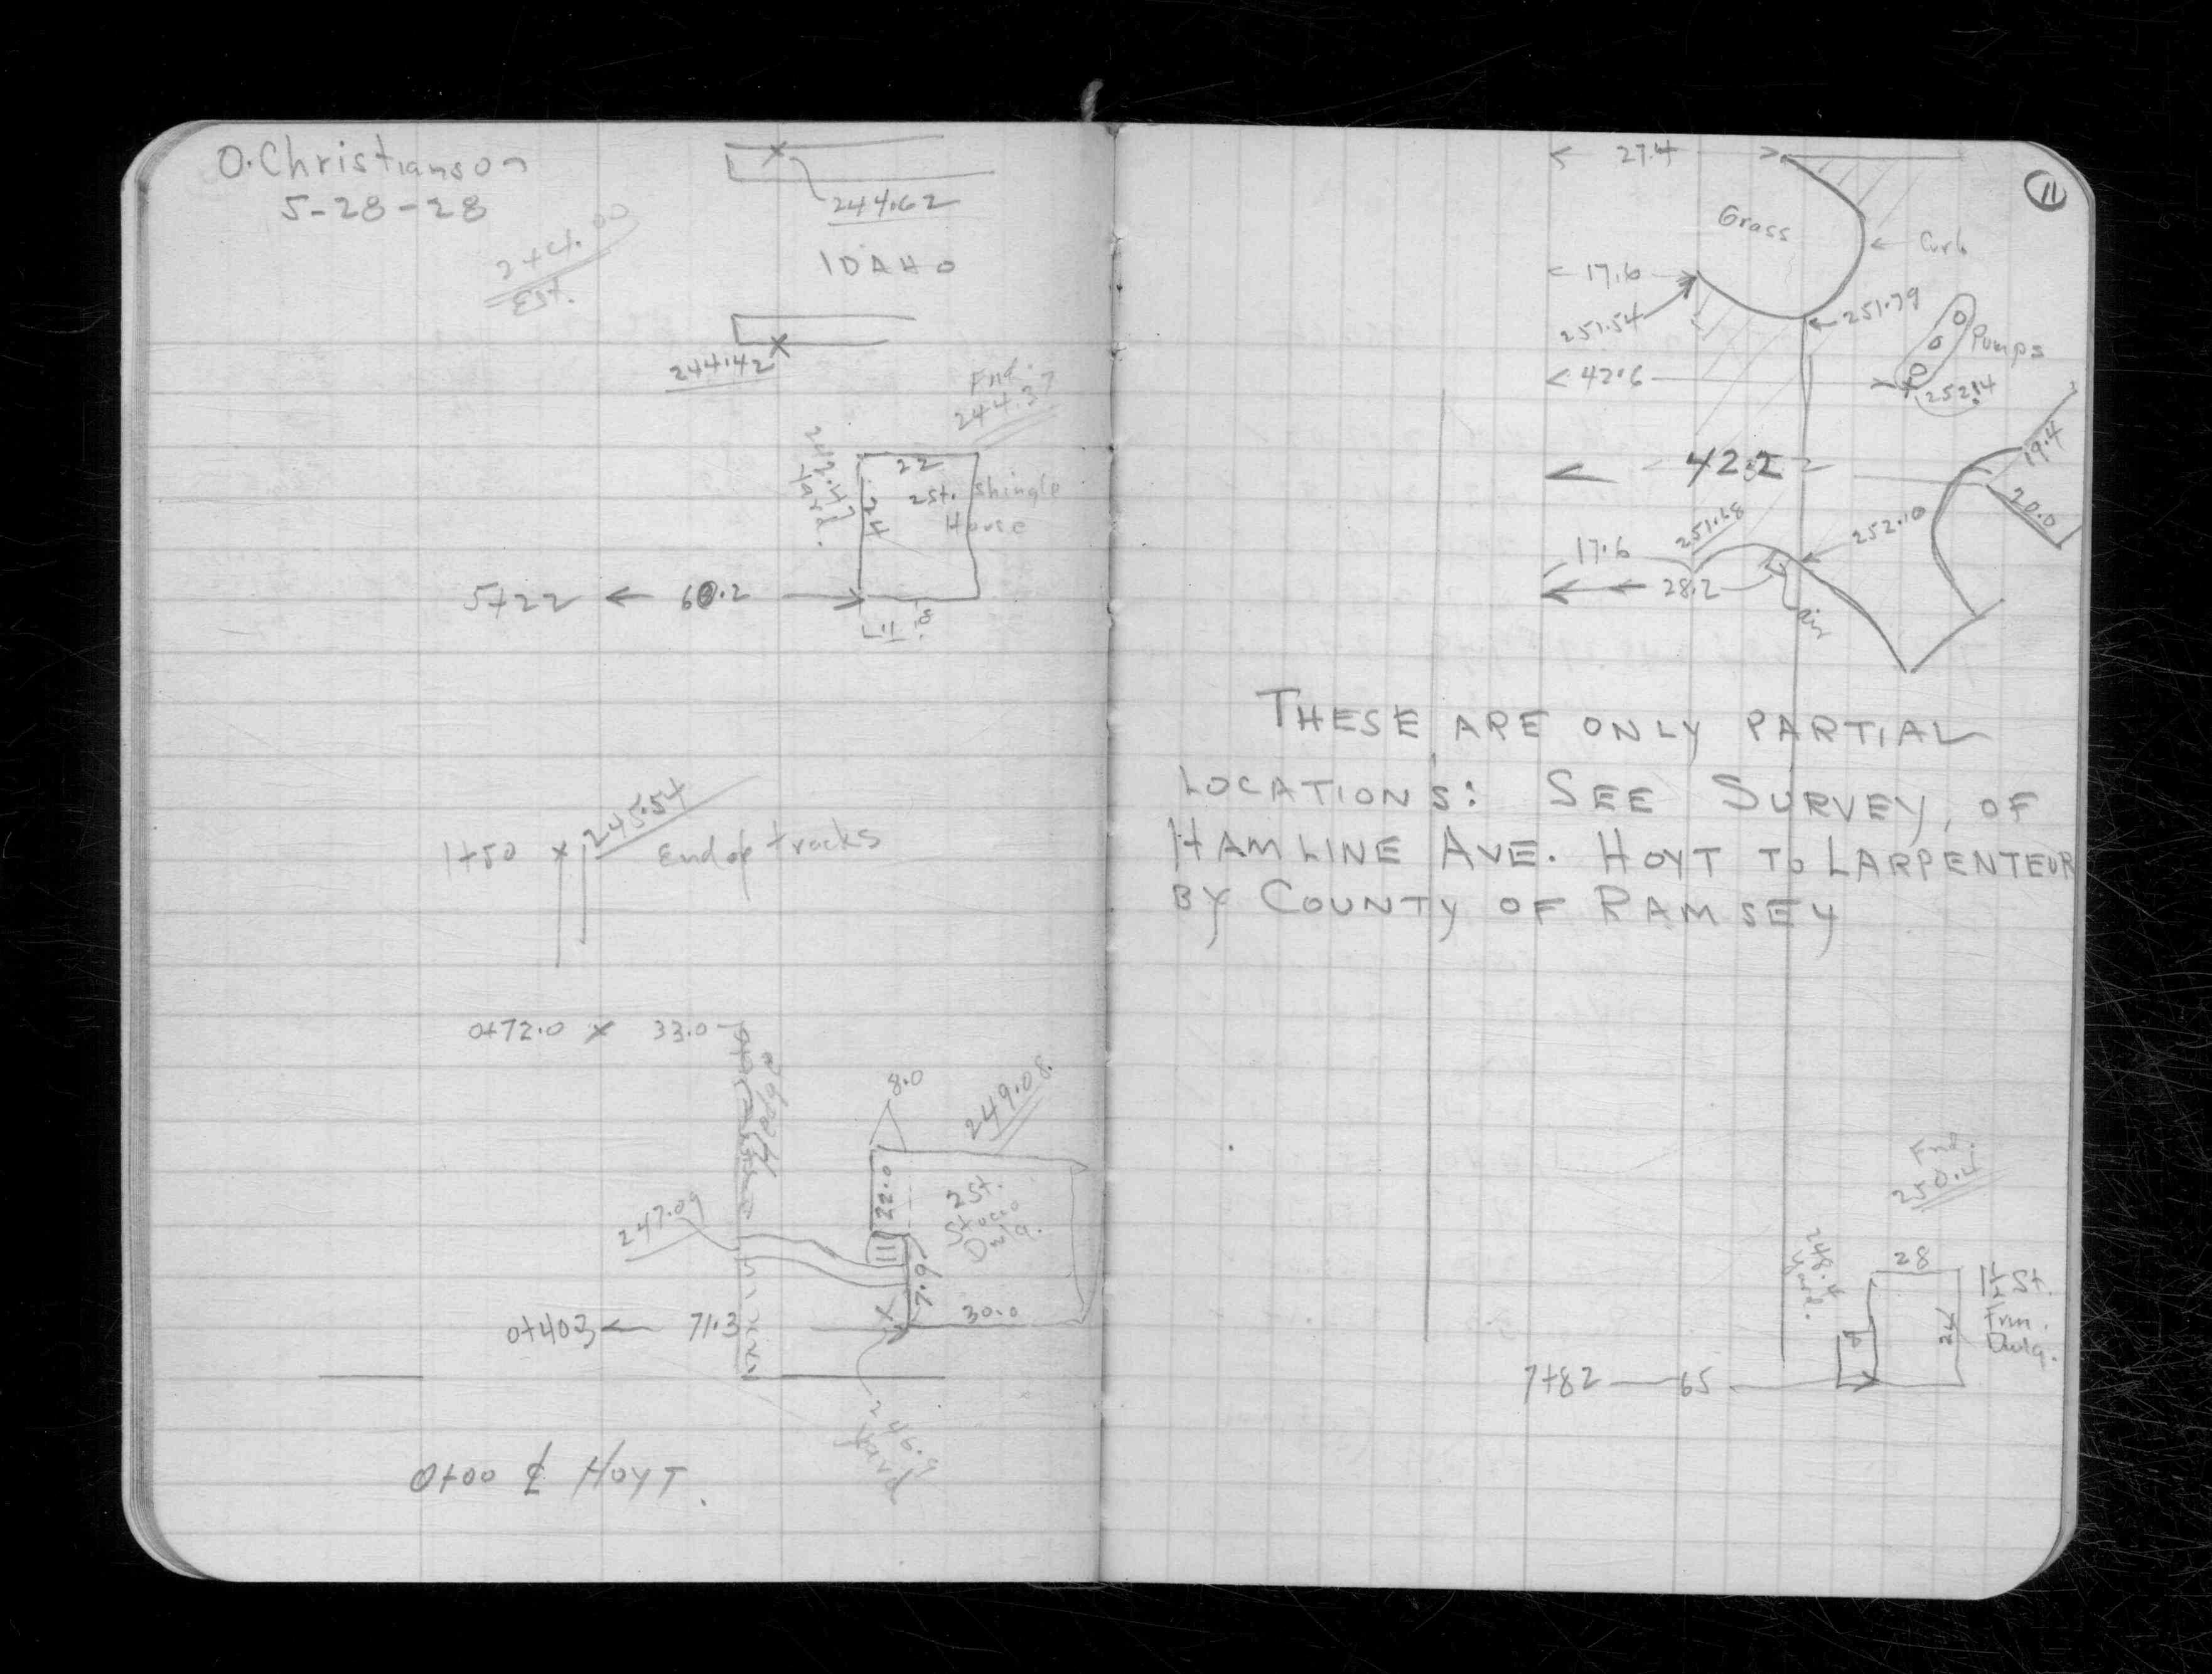 O. Christianson
5-28-28
244.00
Est.
244.62
IDAHO
244.42
Fnd.
244.37
22
2 St. Shingle
House
24
242.4
Yard.
5+22 ← 60.2 →
1+50 x 245.54
End of tracks
0+72.0 x 33.0
Hedge
8.0
249.08
22.0
2 St.
Stucco
Dwlg.
247.09
7.9
30.0
0+40.3 ← 71.3
Yard
0+00 ℄ HOYT.
11
27.4
Grass
Curb
17.6
251.54
251.79
Pumps
42.6
252.14
42.2
19.4
20.0
251.68
252.10
17.6
28.2
air
THESE ARE ONLY PARTIAL
LOCATIONS: SEE SURVEY, OF
HAMLINE AVE. HOYT TO LARPENTEUR
BY COUNTY OF RAMSEY
Fnd.
250.4
248.4
Yard.
28
1½ St.
Frm.
Dwlg.
24
7+82 — 65